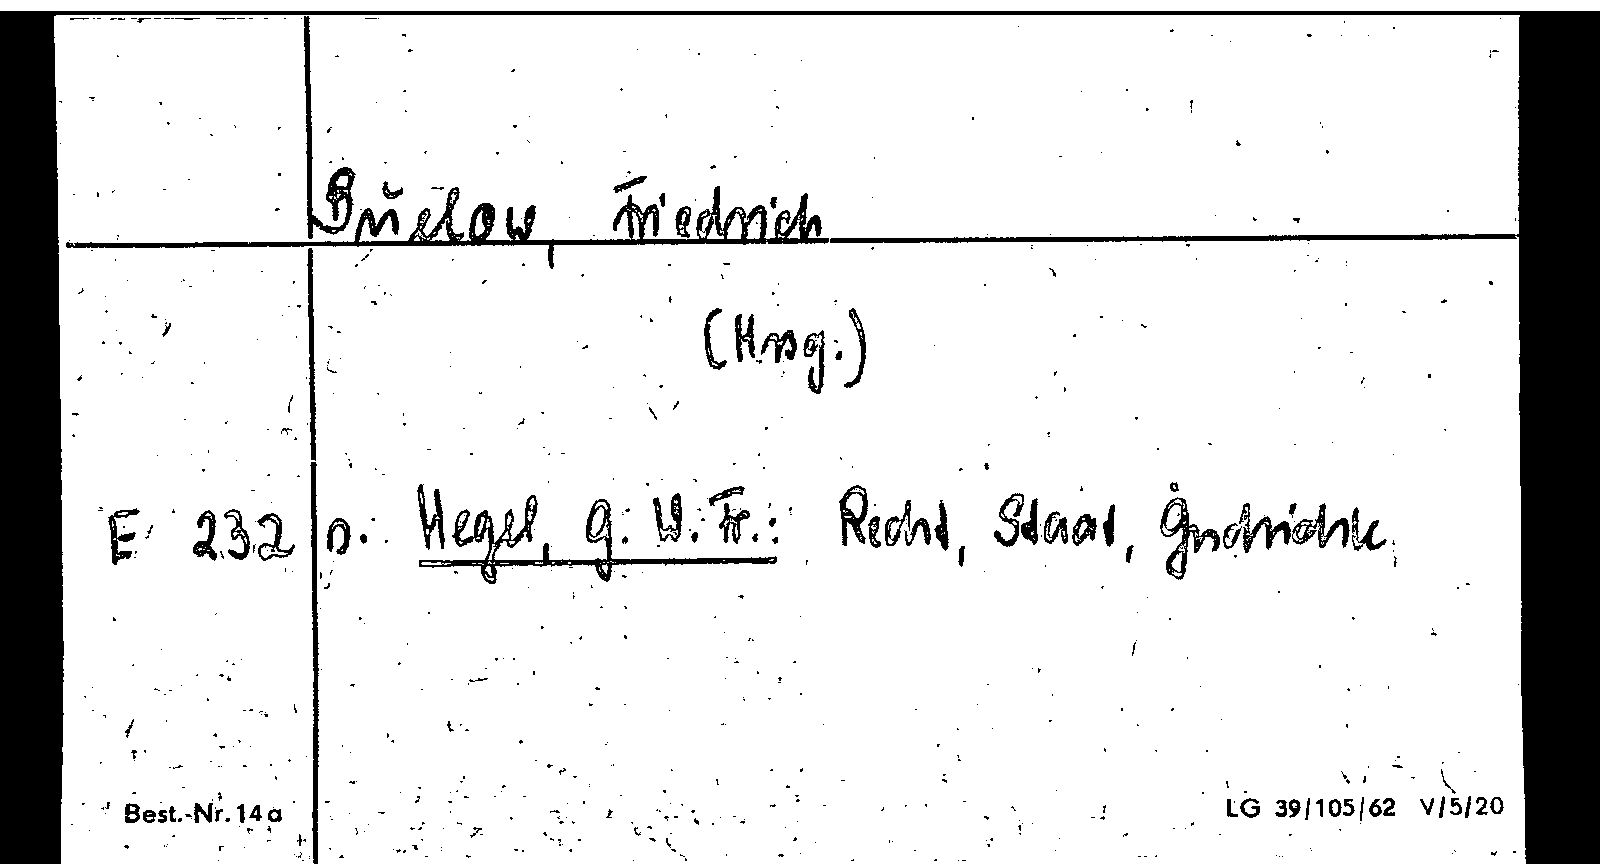 Buelow, Friedrich
(Hrsg.)
E 232 s. Hegel, G. W. Fr.: Recht, Staat, Geschichte
Best.-Nr. 14a LG 39/105/62 V/5/20